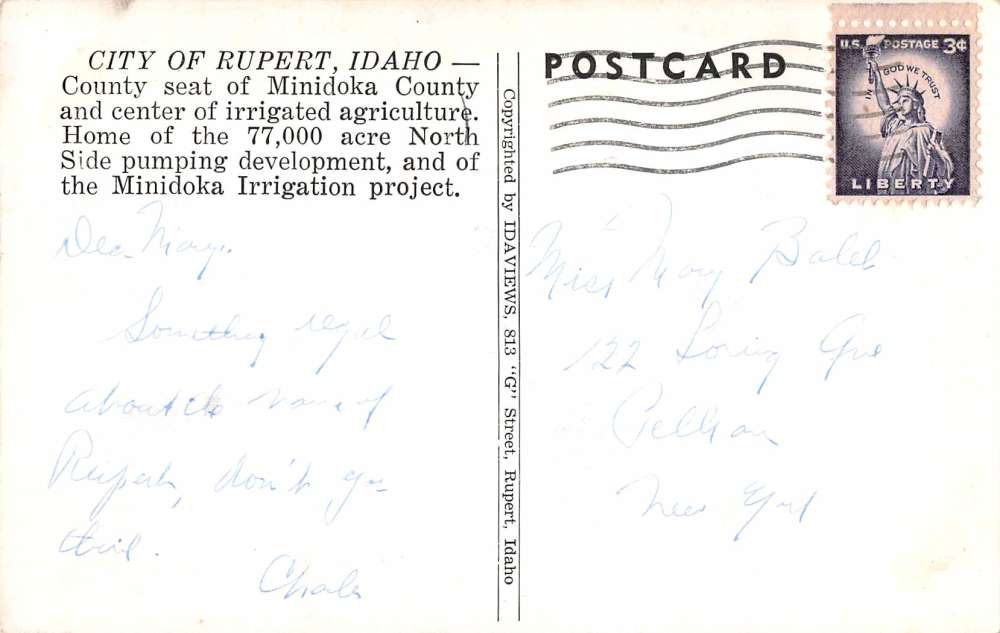 CITY OF RUPERT, IDAHO —
County seat of Minidoka County
and center of irrigated agriculture.
Home of the 77,000 acre North
Side pumping development, and of
the Minidoka Irrigation project.
Dear Mary,
Something regal
about the name of
Rupert, don't you
think.
Copyrighted by IDAVIEWS, 813 "G" Street, Rupert, Idaho
POSTCARD
U.S. POSTAGE 3¢
IN GOD WE TRUST
LIBERTY
Miss Mary
122 Loring Ave
Pelham
New York